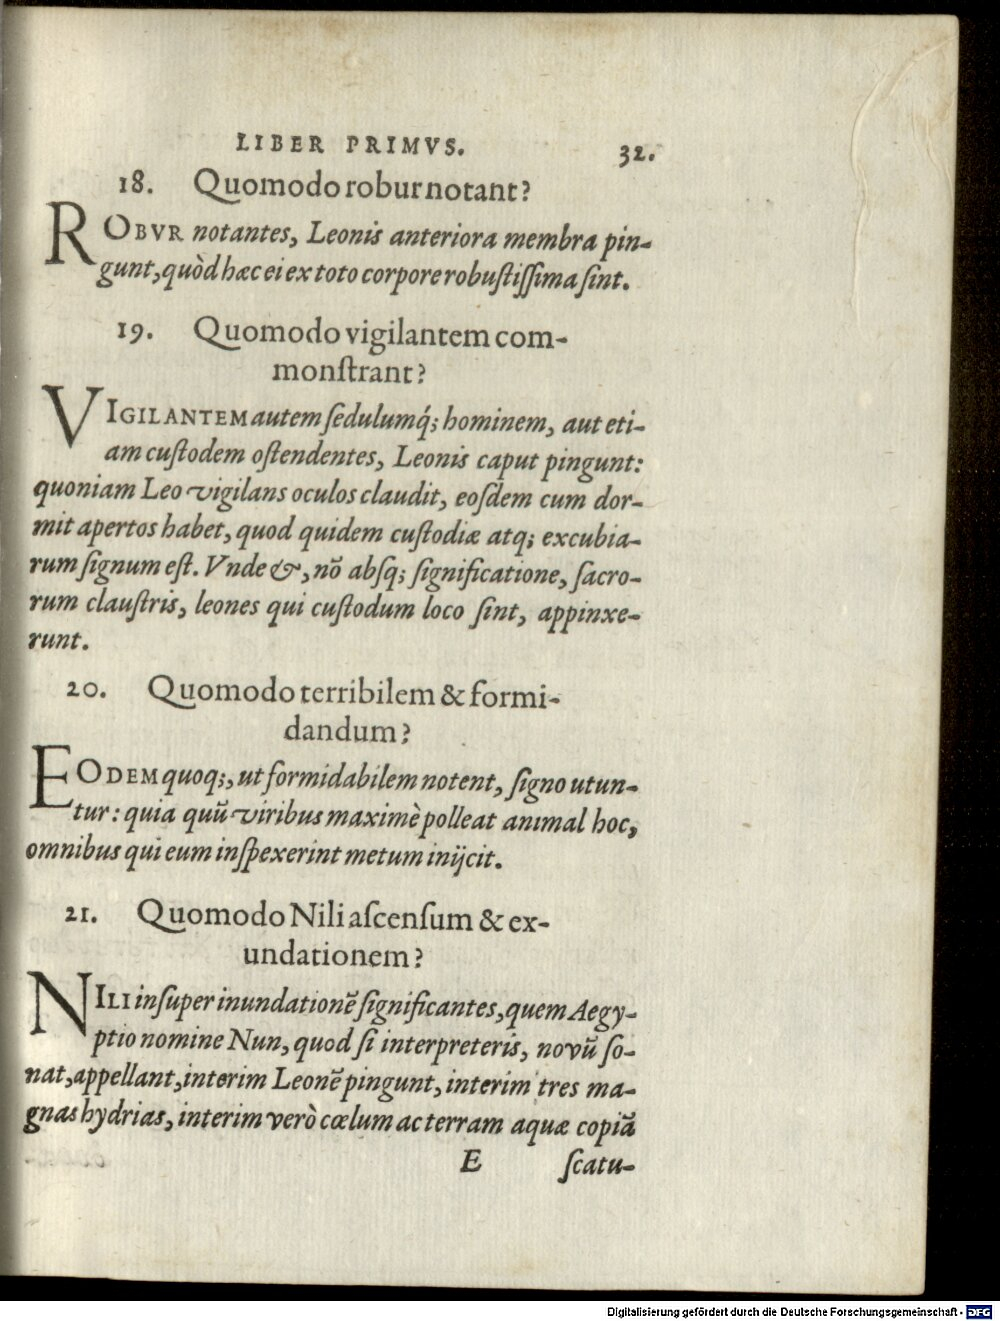 LIBER PRIMVS. 32.
18. Quomodo robur notant?
ROBVR notantes, Leonis anteriora membra pin-
gunt, quòd hæc ei ex toto corpore robustißima sint.
19. Quomodo vigilantem com-
monſtrant?
VIGILANTEM autem ſedulumq́; hominem, aut eti-
am cuſtodem oſtendentes, Leonis caput pingunt:
quoniam Leo vigilans oculos claudit, eoſdem cum dor-
mit apertos habet, quod quidem cuſtodiæ atq; excubia-
rum ſignum eſt. Vnde &, nō abſq; ſignificatione, ſacro-
rum clauſtris, leones qui cuſtodum loco ſint, appinxe-
runt.
20. Quomodo terribilem & formi-
dandum?
EODEM quoq;, ut formidabilem notent, ſigno utun-
tur: quia quū viribus maximè polleat animal hoc,
omnibus qui eum inſpexerint metum inijcit.
21. Quomodo Nili aſcenſum & ex-
undationem?
NILI inſuper inundationē ſignificantes, quem Aegy-
ptio nomine Nun, quod ſi interpreteris, novū ſo-
nat, appellant, interim Leonē pingunt, interim tres ma-
gnas hydrias, interim verò cœlum ac terram aquæ copiā
E ſcatu-
Digitalisierung gefördert durch die Deutsche Forschungsgemeinschaft - DFG